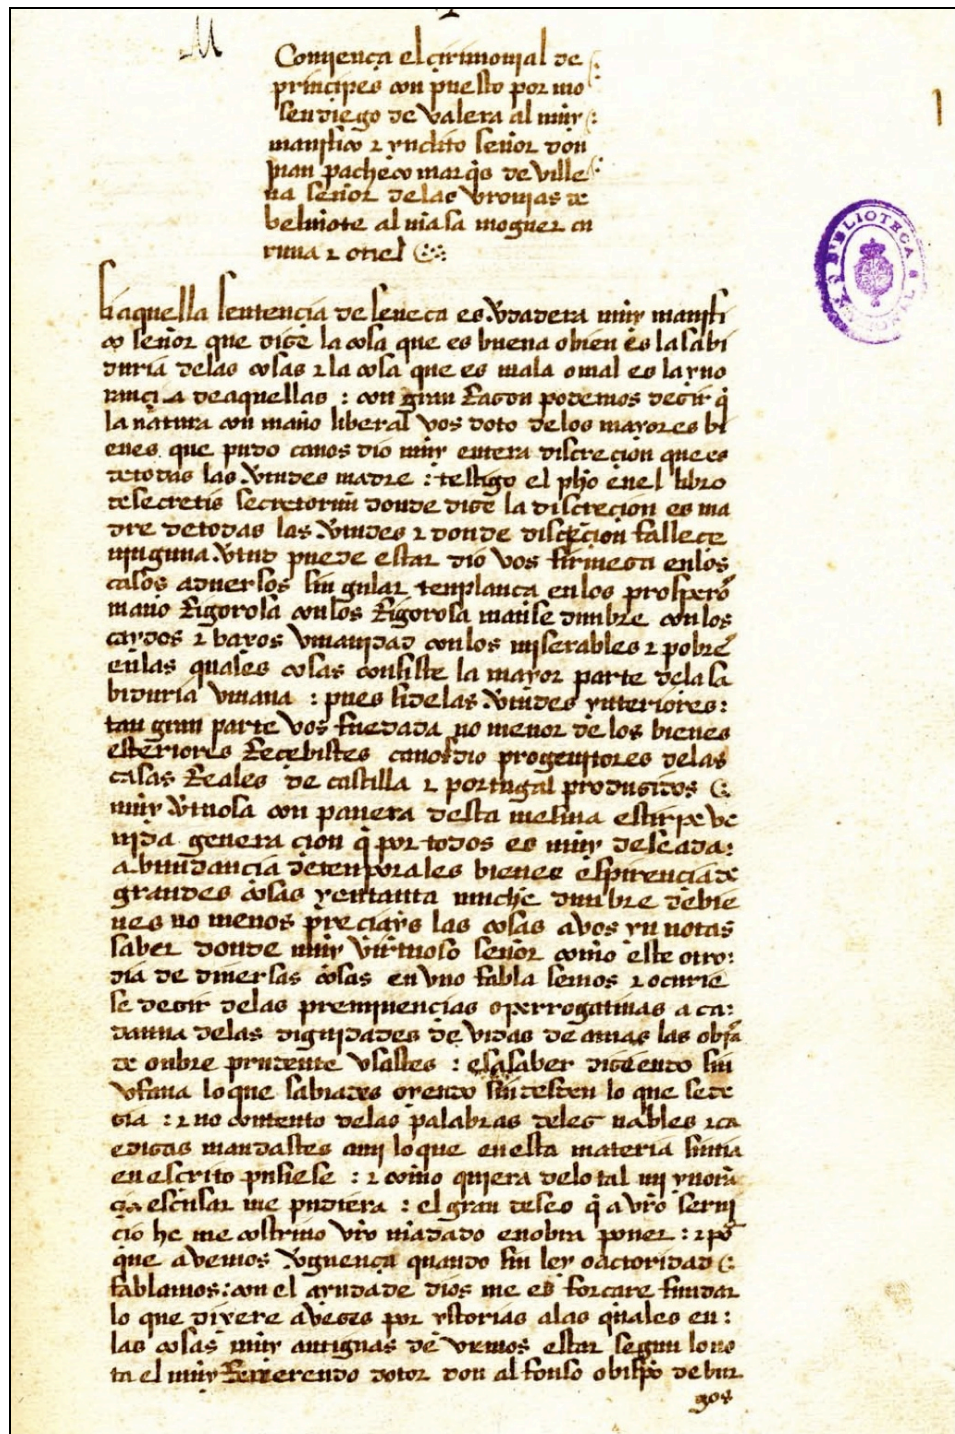 M
Comiença el çirimonial de
prinçipes con puesto por mo
sen diego de valera al muy
manifico ⁊ ynclito señor don
juan pacheco marq̃s de ville
na señor delas vronias de
belmõte al mãsa moguer ca
⁊ otiel
Si aquella sentençia de seneca es v̾dadera muy manifi
co señor que dize la cosa que es buena obien es la sabi
duria delas cosas ⁊ la cosa que es mala o mal es la yno
rançia de aquellas : con gran Razon podemos dezir q̃
la natura con mano liberal vos doto delos mayores bi
enes que pudo canos dio muy entera discreçion que es
de todas las v̾tudes madre : testigo el ph̃o enel libro
de secretis secretorũ donde dize la discreçion es ma
dre de todas las v̾tudes ⁊ donde discreçion falleçe
ninguna v̾tud puede estar dio vos firmeza enlos
casos aduersos sin gular tenplança enlos prosperõ
mano Rigorosa conlos Rigorosa manse dunbre conlos
caydos ⁊ baxos vmanidad conlos miserables ⁊ pobrẽ
enlas quales cosas consiste la mayor parte dela sa
biduria vmana : pues si delas v̾tudes ynteriores :
tan gran parte vos fue dada no menor de los bienes
esteriores Reçebistes canos dio progenitores delas
casas Reales de castilla ⁊ portugal produzidos
muy v̾tuosa con panera desta mesma estirpe ve
nida genera çion q̃ por todos es muy deseada :
abundançia de tenporales bienes espirençia de
grandes cosas y en tanta muche dunbre de bie
nes no menos preçiays las cosas avos yn notas
saber donde muy virtuoso señor como este otro :
dia de diuersas cosas en vno fabla semos ⁊ ocurrie
se dezir delas preminençias o perrogatiuas a ca :
dauna delas dignidades de vidas de amas las obr̃a
de onbre prudente vsastes : es a saber diziendo sin
vfana lo que sabiades oyendo sin desden lo que se de
zia : ⁊ no contento delas palabras delez nables ⁊ ca
edizas mandastes ami lo que en esta materia sintia
en escrito pusiese : ⁊ como quiera delo tal mi ynorã
çia escusar me pudiera : el gran deseo q̃ a vr̃o serui
çio he me costrino vr̃o mãdado en obra poner : ⁊ por
que avemos v̾guença quando sin ley o actoridad
fablamos : con el ayuda de dios me es forçare fundar
lo que dixere avezes por ystorias alas quales en :
las cosas muy antiguas de vemos estar segun lo no
ta el muy Reuerendo dotor don alfonso obispo de bur
gos
BIBLIOTECA NACIONAL